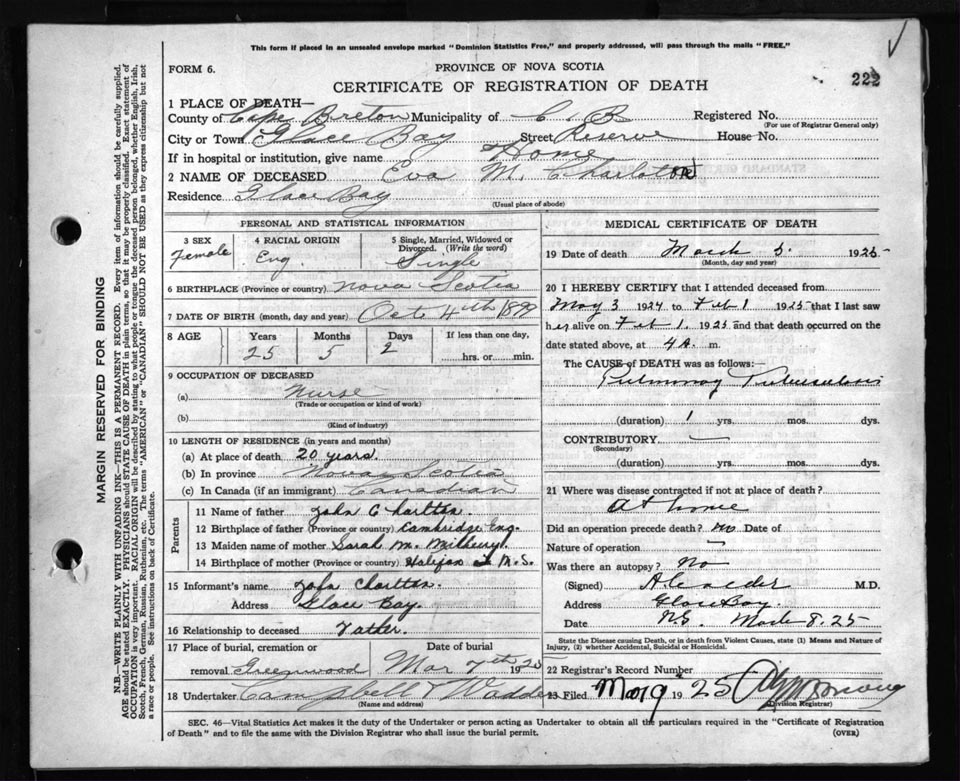 This form if placed in an unsealed envelope marked "Dominion Statistics Free," and properly addressed, will pass through the mails "FREE."
FORM 6.
PROVINCE OF NOVA SCOTIA
CERTIFICATE OF REGISTRATION OF DEATH
222
1 PLACE OF DEATH—
County of Cape Breton Municipality of C. B. Registered No.
(For use of Registrar General only)
City or Town Glace Bay Street Reserve House No.
If in hospital or institution, give name Home
2 NAME OF DECEASED Eva M. Charlton
Residence Glace Bay
(Usual place of abode)
PERSONAL AND STATISTICAL INFORMATION
3 SEX Female
4 RACIAL ORIGIN Eng.
5 Single, Married, Widowed or Divorced. (Write the word) Single
6 BIRTHPLACE (Province or country) Nova Scotia
7 DATE OF BIRTH (month, day and year) Oct 4th 1899
8 AGE Years 25 Months 5 Days 2 If less than one day, hrs. or min.
9 OCCUPATION OF DECEASED
(a) Nurse
(Trade or occupation or kind of work)
(b)
(Kind of industry)
10 LENGTH OF RESIDENCE (in years and months)
(a) At place of death 20 years.
(b) In province Nova Scotia
(c) In Canada (if an immigrant) Canadian
Parents
11 Name of father John Charlton
12 Birthplace of father (Province or country) Cambridge Eng.
13 Maiden name of mother Sarah M. Milbury.
14 Birthplace of mother (Province or country) Halifax N.S.
15 Informant's name John Charlton.
Address Glace Bay.
16 Relationship to deceased Father.
17 Place of burial, cremation or Date of burial
removal Greenwood Mar 7th 1925
18 Undertaker Campbell & Wadden
(Name and address)
MEDICAL CERTIFICATE OF DEATH
19 Date of death March 5. 1925
(Month, day and year)
20 I HEREBY CERTIFY that I attended deceased from
May 3 1924 to Feb 1 1925 that I last saw
her alive on Feb 1. 1925 and that death occurred on the
date stated above, at 4 A. m.
The CAUSE OF DEATH was as follows:
Pulmonary Tuberculosis
(duration) 1 yrs. mos. dys.
CONTRIBUTORY —
(Secondary)
(duration) yrs. mos. dys.
21 Where was disease contracted if not at place of death?
At home
Did an operation precede death? no Date of
Nature of operation —
Was there an autopsy? No
(Signed) M.D.
Address Glace Bay.
Date N.S. March 8. 25
State the Disease causing Death, or in death from Violent Causes, state (1) Means and Nature of Injury, (2) whether Accidental, Suicidal or Homicidal.
22 Registrar's Record Number
23 Filed Mar 9 1925
(Division Registrar)
SEC. 46—Vital Statistics Act makes it the duty of the Undertaker or person acting as Undertaker to obtain all the particulars required in the "Certificate of Registration
of Death" and to file the same with the Division Registrar who shall issue the burial permit. (OVER)
MARGIN RESERVED FOR BINDING
N.B.—WRITE PLAINLY WITH UNFADING INK—THIS IS A PERMANENT RECORD. Every item of information should be carefully supplied.
AGE should be stated EXACTLY. PHYSICIANS should STATE CAUSE OF DEATH in plain terms, so that it may be properly classified. Exact statement of
OCCUPATION is very important. RACIAL ORIGIN will be described by stating to what people or tongue the deceased person belonged, whether English, Irish,
Scotch, French, German, Russian, Ruthenian, etc. The terms "AMERICAN" or "CANADIAN" SHOULD NOT BE USED as they express citizenship but not
a race or people. See instructions on back of Certificate.